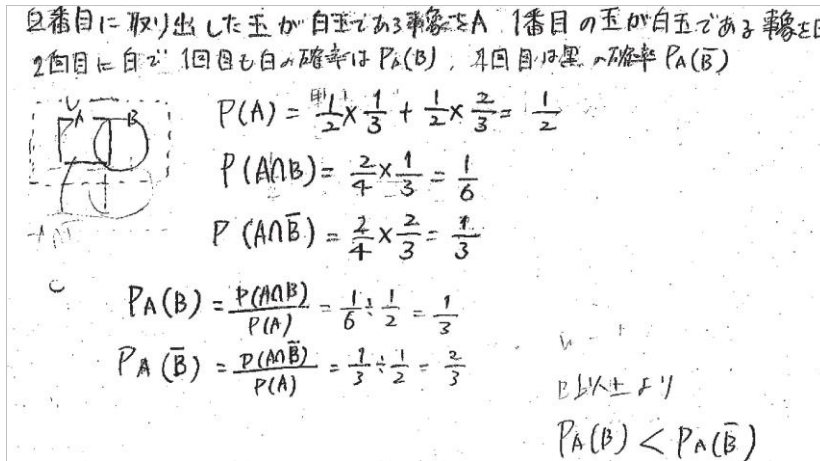 2番目に取り出した玉が白玉である事象をA 1番目の玉が白玉である事象を
2回目に白で 1回目も白の確率は P_A(B), 1回目は黒の確率 P_A(B̄)
U
A B
P(A) = 1/2 × 1/3 + 1/2 × 2/3 = 1/2
P(A∩B) = 2/4 × 1/3 = 1/6
P(A∩B̄) = 2/4 × 2/3 = 1/3
P_A(B) = P(A∩B)/P(A) = 1/6 ÷ 1/2 = 1/3
P_A(B̄) = P(A∩B̄)/P(A) = 1/3 ÷ 1/2 = 2/3
以上より
P_A(B) < P_A(B̄)